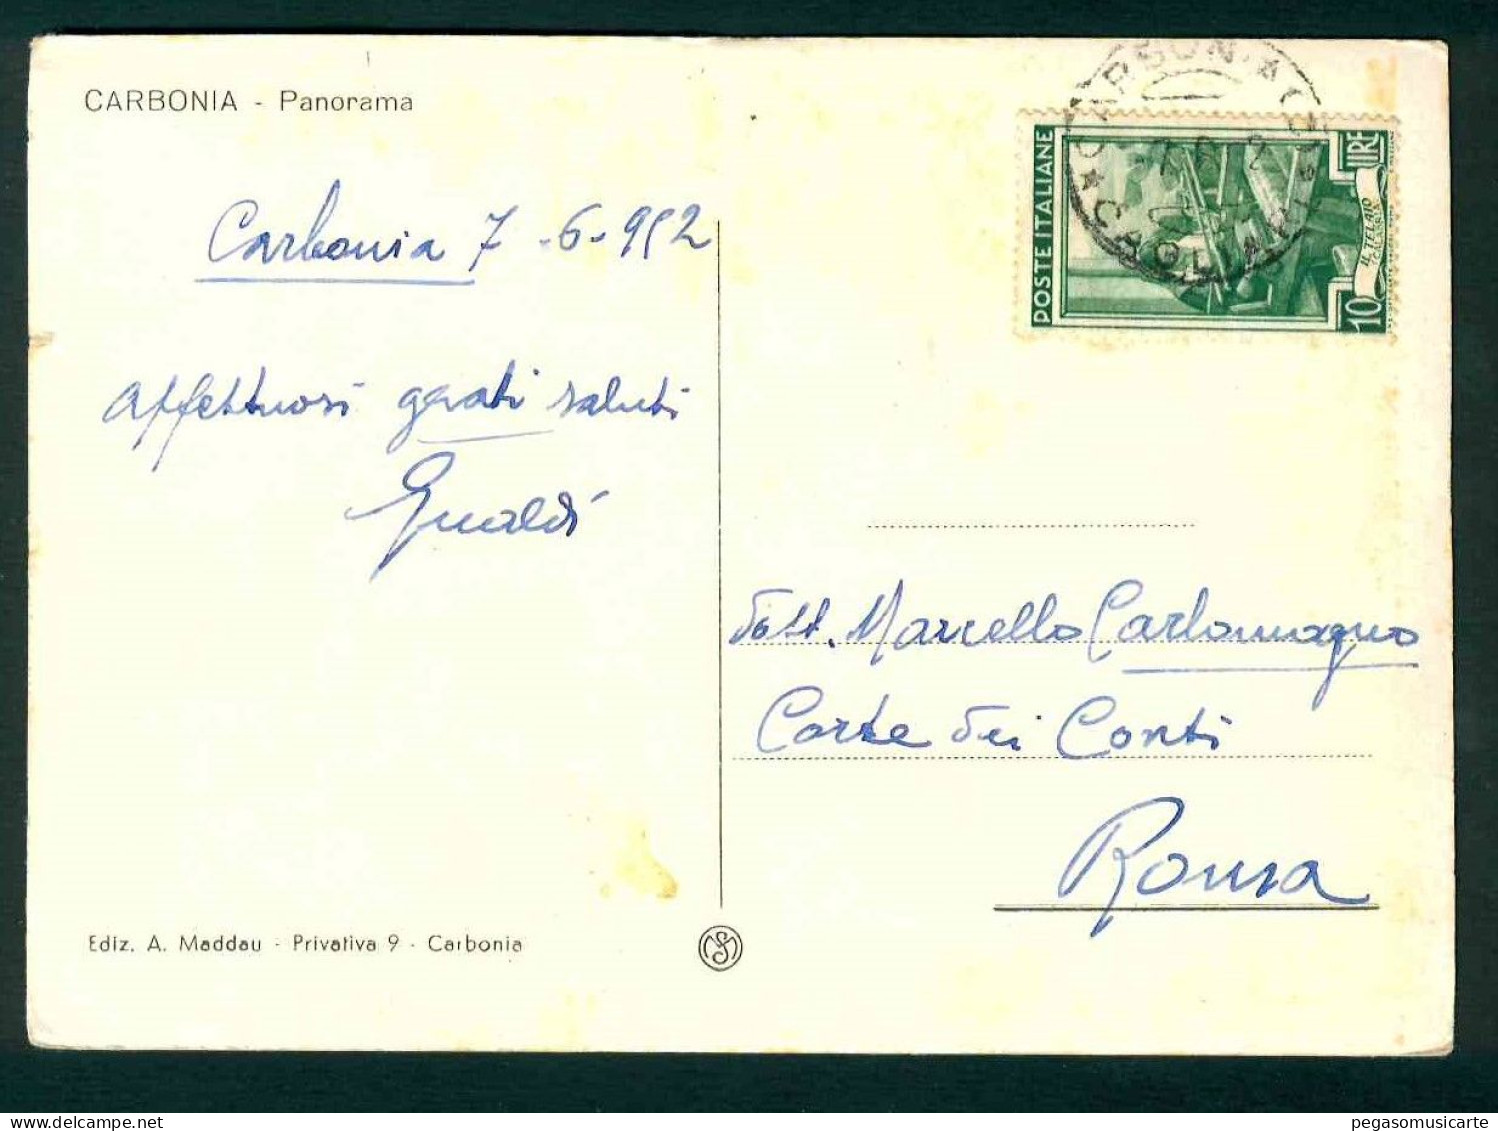 CARBONIA - Panorama
Carbonia 7-6-952
affettuosi grati saluti
Gualdi
Ediz. A. Maddau - Privativa 9 - Carbonia
CARBONIA
CAGLIARI
POSTE ITALIANE
LIRE
IL TELAIO
10
dott. Marcello Carlomagno
Corte dei Conti
Roma
pegasomusicarte